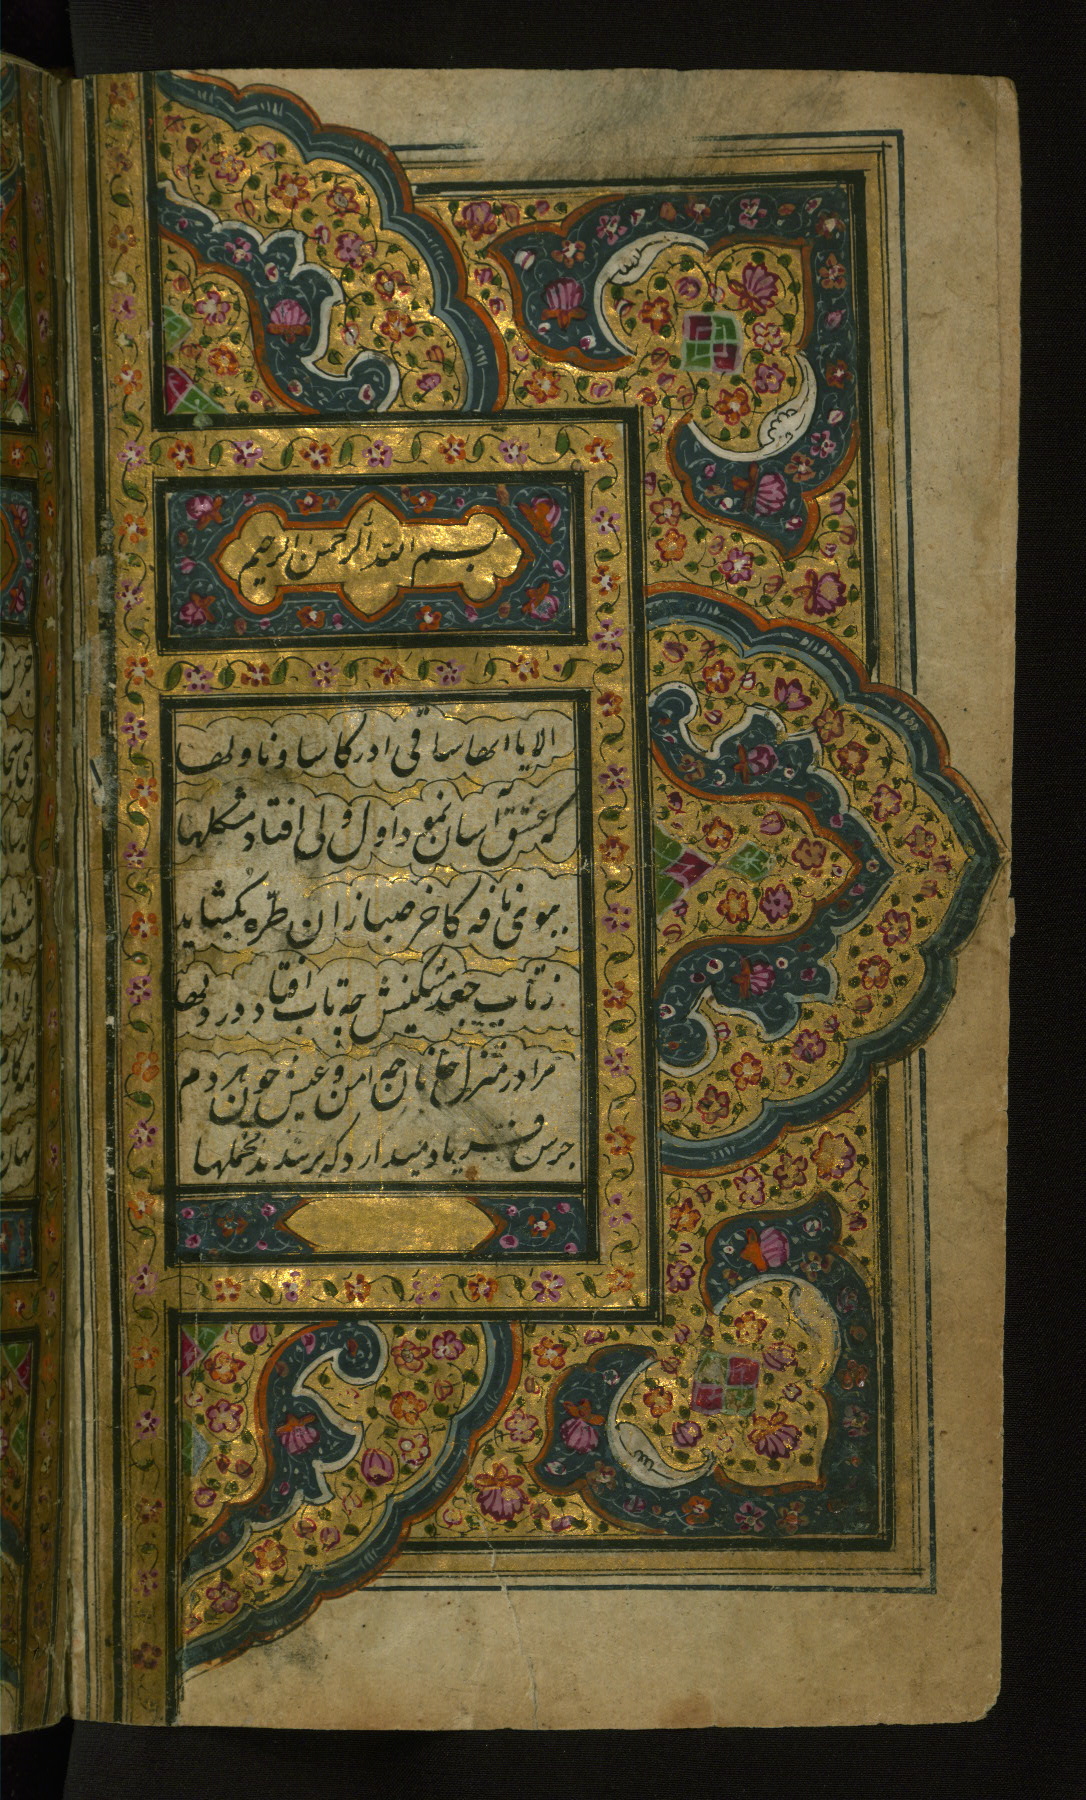 بسم الله الرحمن الرحیم
الا یا ایها ساقی ادر کاسا و ناولها
که عشق آسان نمود اول ولی افتاد مشکلها
ببوی نافه کاخر صبا زان طره بکشاید
ز تاب جعد مشکینش چه تاب افتاد در دلها
مرا در منزل جانان چه امن و عیش چون هر دم
جرس فریاد میدارد که بر بندید محملها